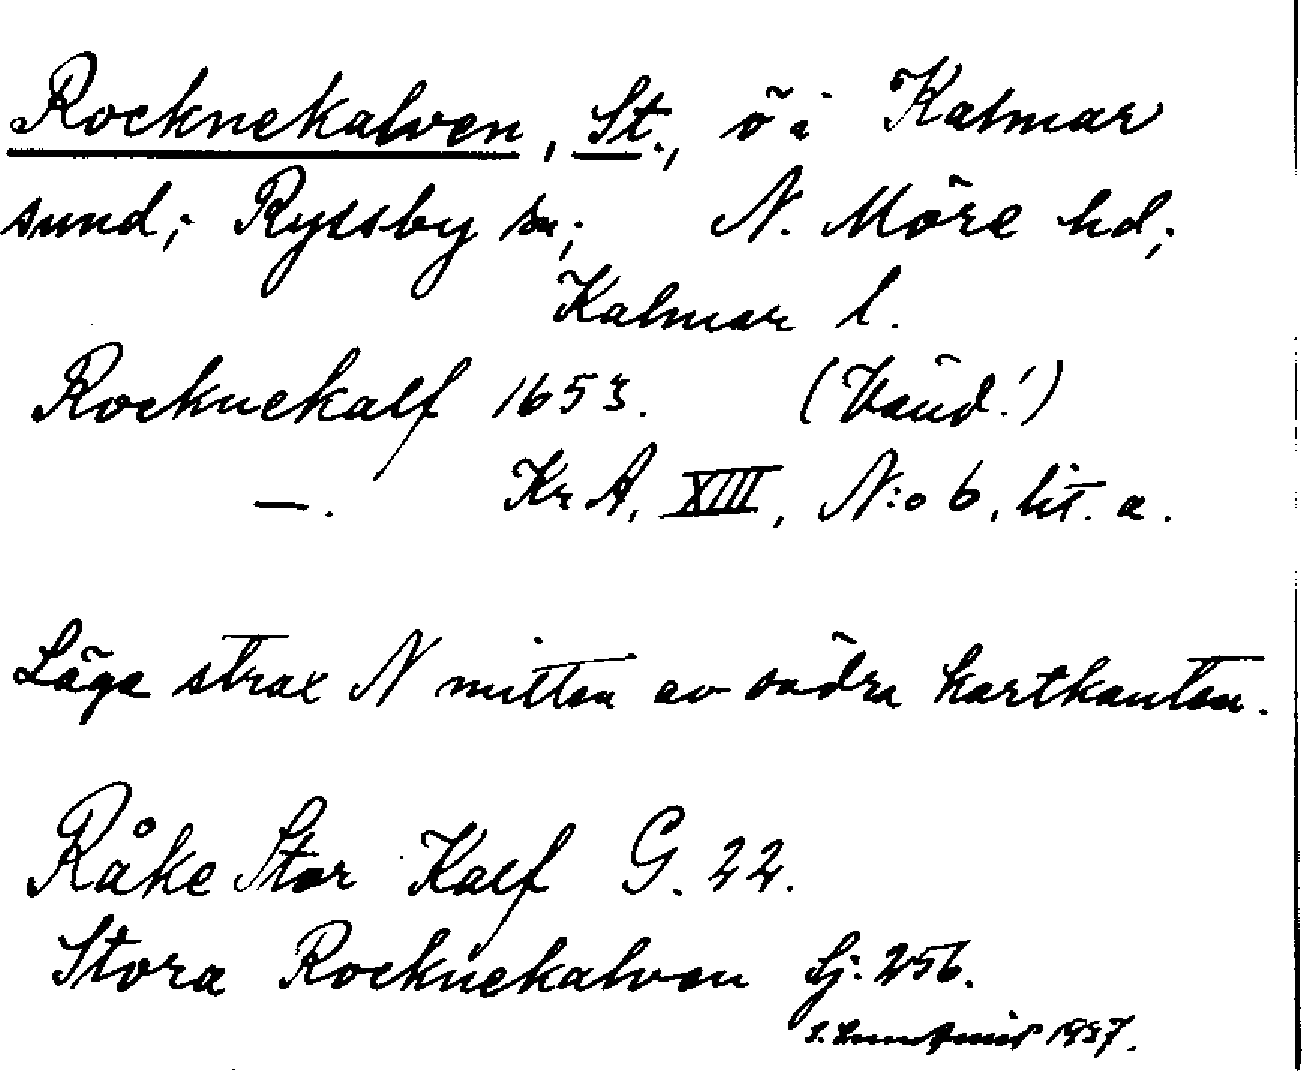 Rocknekalven, St., ö i Kalmar
sund; Ryssby sn; N. Möre hd;
Kalmar l.
Rocknekalf 1653. (Vänd!)
—. Kr A, XIII, N:o 6, lit. a.
Läge strax N mitten av södra kartkanten.
Råke Stor Kalf G. 22.
Stora Rocknekalven Sj. 256.
1937.